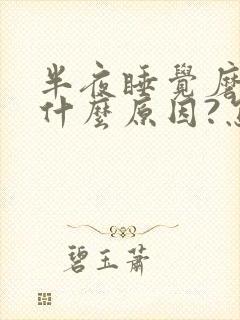 半夜睡覺磨
什麼原因?
碧玉蕭